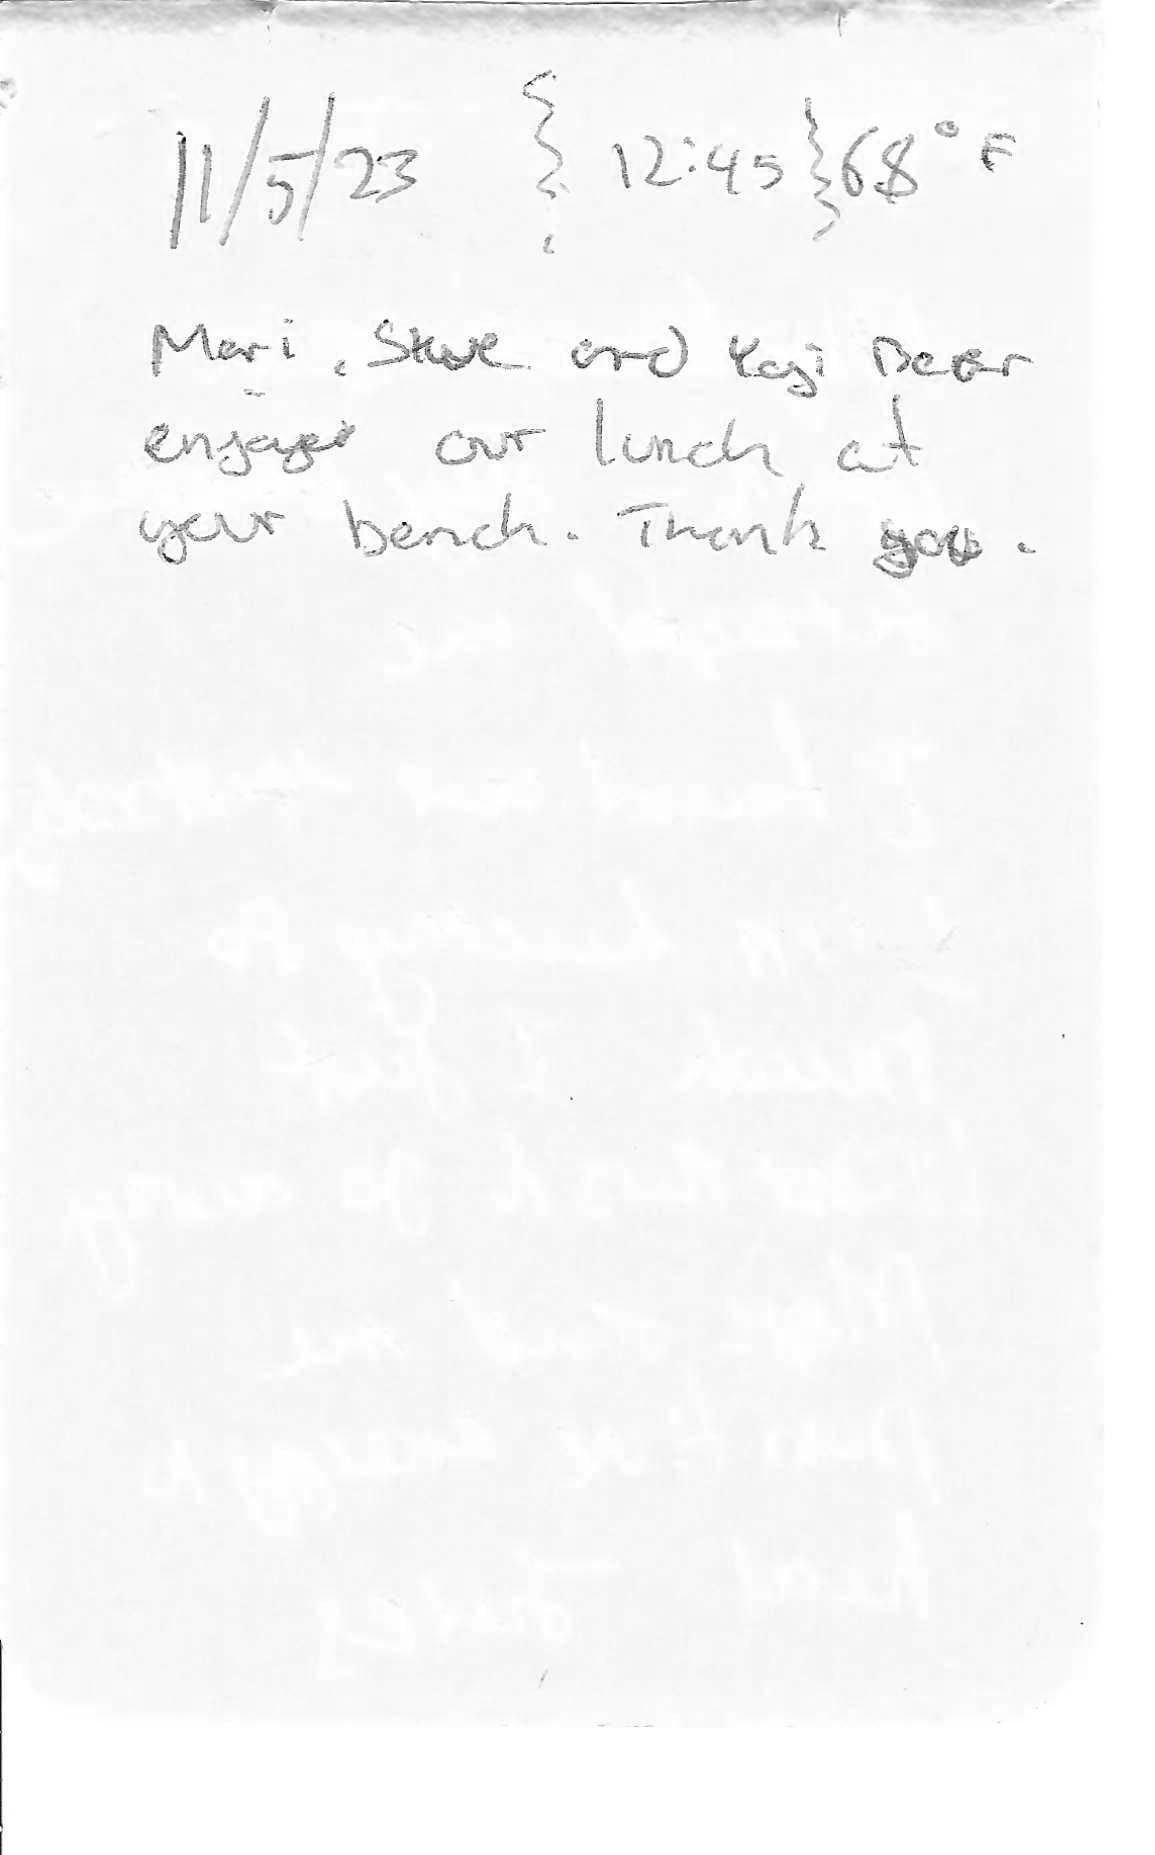 11/5/23 { 12:45 } 68° F
Mari, Steve and Yogi Bear
enjoyed our lunch at
your bench. Thank you.